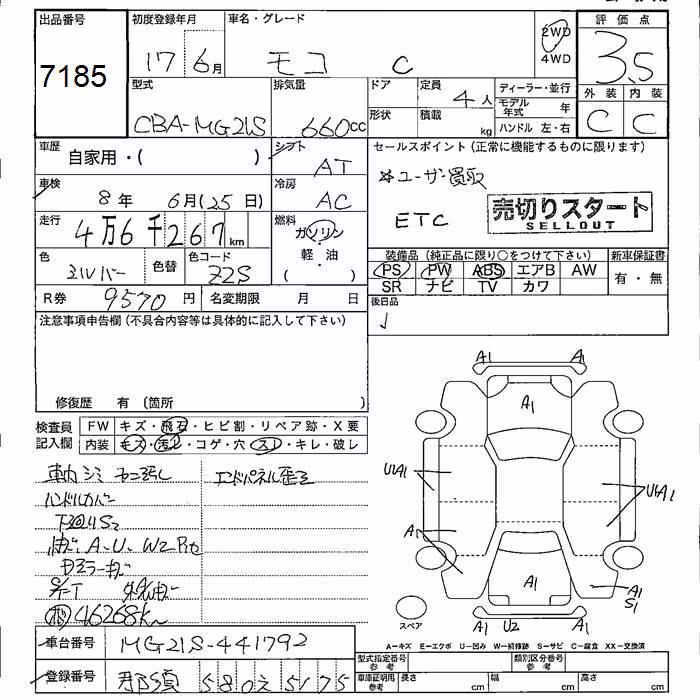 出品番号
7185
初度登録年月
17 6月
車名・グレード
モコ C
2WD
4WD
評価点
3.5
外装 内装
C C
型式
CBA-MG21S
排気量
660cc
ドア
形状
定員
4人
積載
kg
ディーラー・並行
モデル年式 年
ハンドル 左・右
車歴
自家用・( )
シフト
AT
車検
8年 6月(25日)
冷房
AC
走行
4万6千267km
燃料
ガソリン
軽・油
( )
色
シルバー
色替
色コード
Z2S
R券 9570円 名変期限 月 日
セールスポイント(正常に機能するものに限ります)
※ユーザー買取
ETC
売切りスタート
SELLOUT
装備品(純正品に限り○をつけて下さい)
PS PW ABS エアB AW
SR ナビ TV カワ
新車保証書
有・無
後日品
注意事項申告欄(不具合内容等は具体的に記入して下さい)
修復歴 有 〔箇所
検査員記入欄
FW キズ・飛石・ヒビ割・リペア跡・X要
内装 キズ・汚レ・コゲ・穴・スレ・キレ・破レ
エンドパネル歪ミ
ハンドルカバー
下回りS2
46268km
車台番号 MG21S-441792
登録番号 那須 580 え 5175
A1 A1
A1
U1A1
U1A1
A1
A1
A1
S1
A1 U2 A1
スペア
A=キズ E=エクボ U=凹み W=補修跡 S=サビ C=腐食 XX=交換済
型式指定番号 参考
類別区分番号 参考
車庫証明用 参考
長さ cm
幅 cm
高さ cm